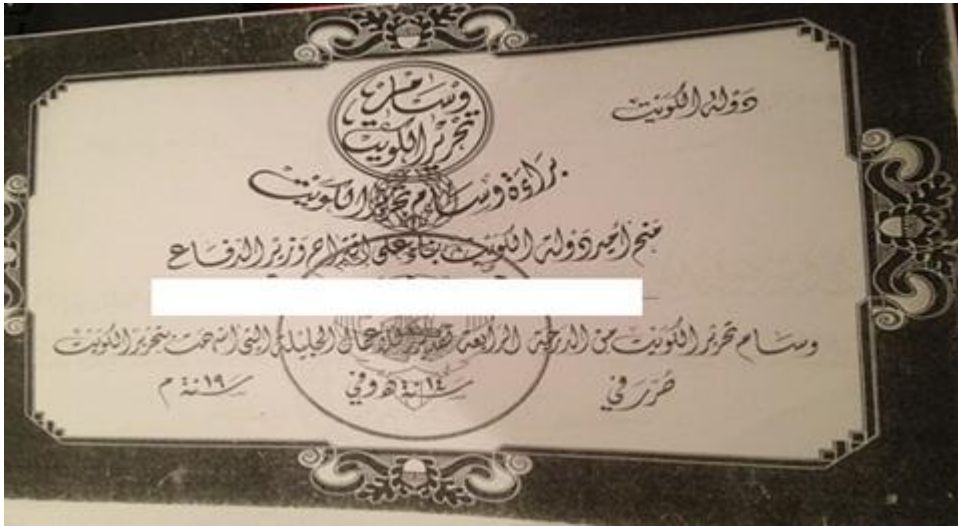 دولة الكويت
وسام
تحرير الكويت
براءة وسام تحرير الكويت
منح أمير دولة الكويت بناء على اقتراح وزير الدفاع
وسام تحرير الكويت من الدرجة الرابعة تقديرا للأعمال الجليلة التي أسهمت بتحرير الكويت
حرر في سنة ١٤ هـ وفي سنة ١٩ م